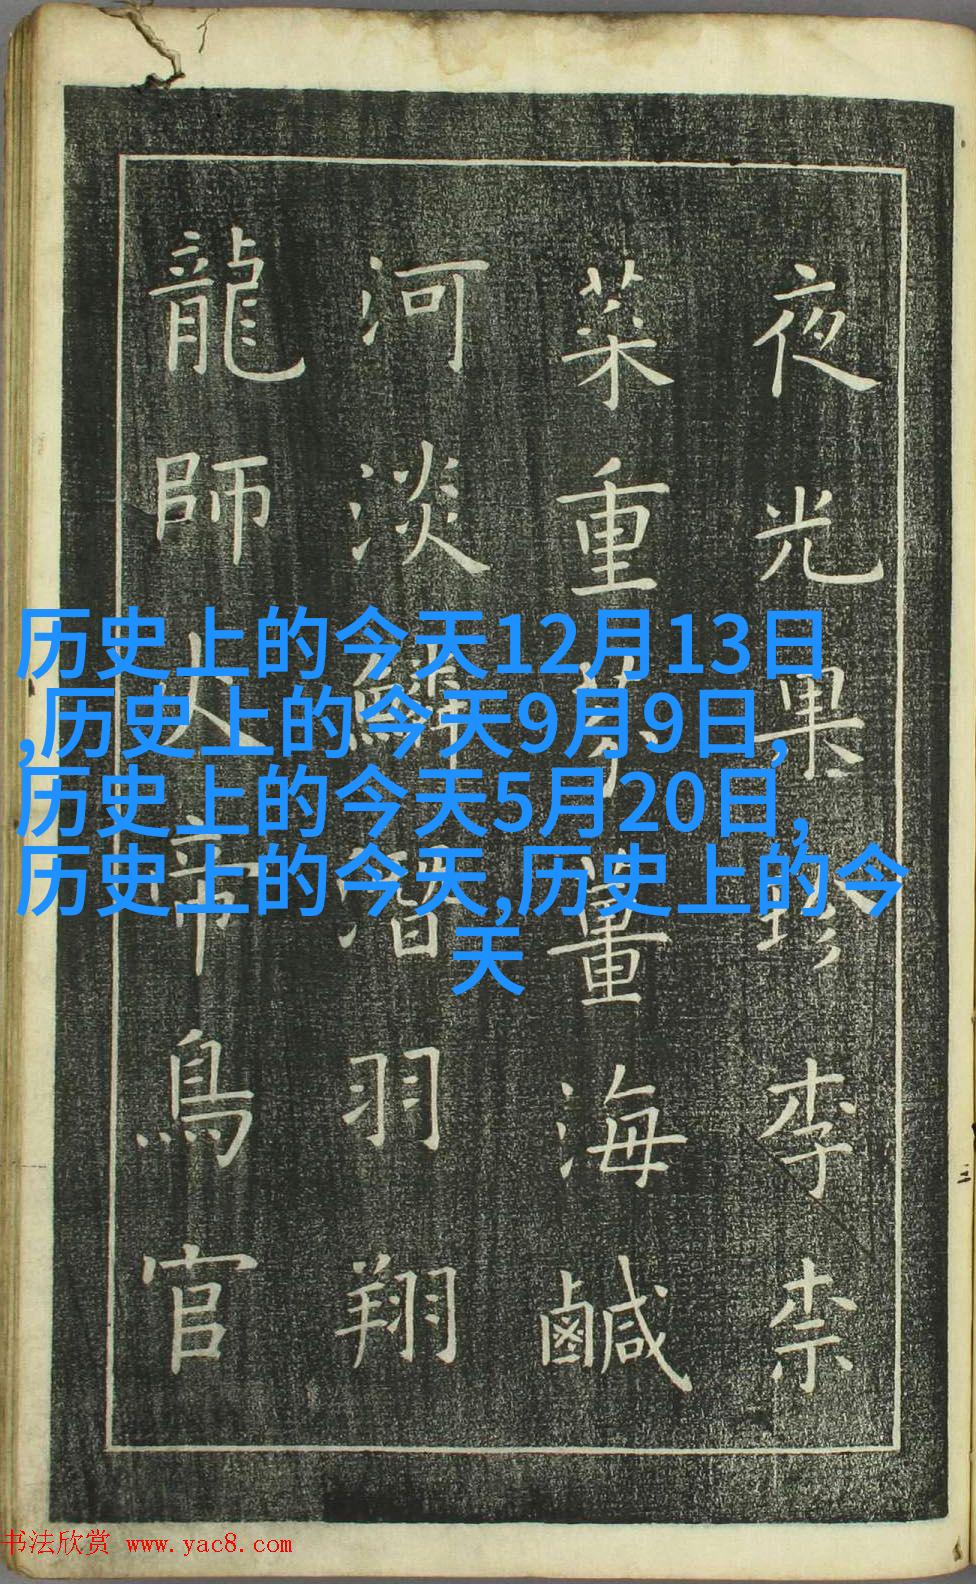 夜光果珍李柰
菜重芥薑海鹹
河淡鱗潛羽翔
龍師火帝鳥官
历史上的今天12月13日
,历史上的今天9月9日,
历史上的今天5月20日,
历史上的今天,历史上的今
天
书法欣赏 www.yac8.com